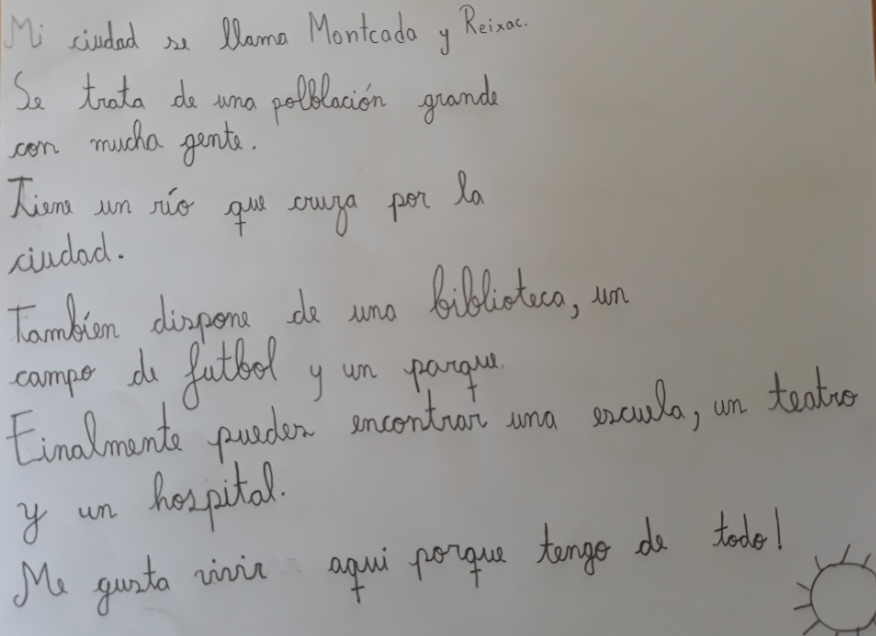 Mi ciudad se llama Montcada y Reixac.
Se trata de una polblación grande
con mucha gente.
Tiene un río que cruza por la
ciudad.
Tambíen dispone de una biblioteca, un
campo de futbol y un parque.
Finalmente puedes encontrar una escuela, un teatro
y un hospital.
Me gusta vivir aqui porque tengo de todo!